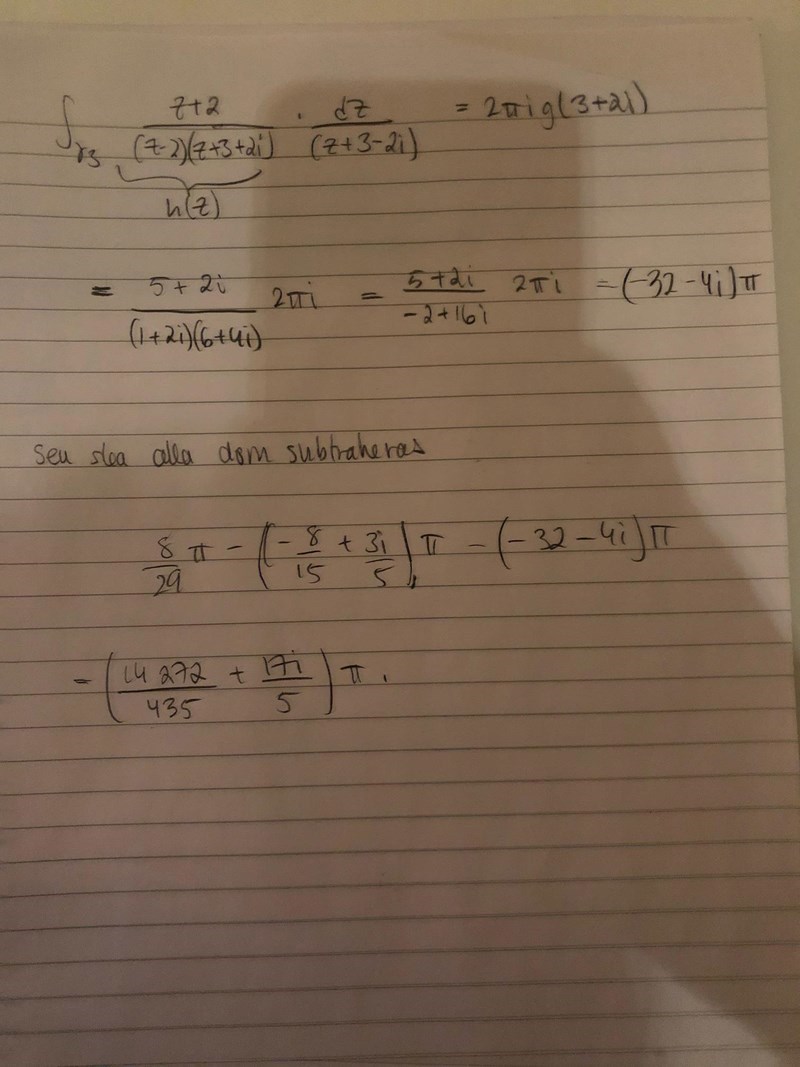 ∫_γ3 (z+2)/((z-2)(z+3+2i)) · dz/(z+3-2i) = 2πi g(3+2i)
h(z)
= (5+2i)/((1+2i)(6+4i)) 2πi = (5+2i)/(-2+16i) 2πi = (-32-4i)π
Seu ska alla dom subtraheras
8/29 π - (-8/15 + 3i/5)π - (-32-4i)π
= (14 272/435 + 17i/5)π.